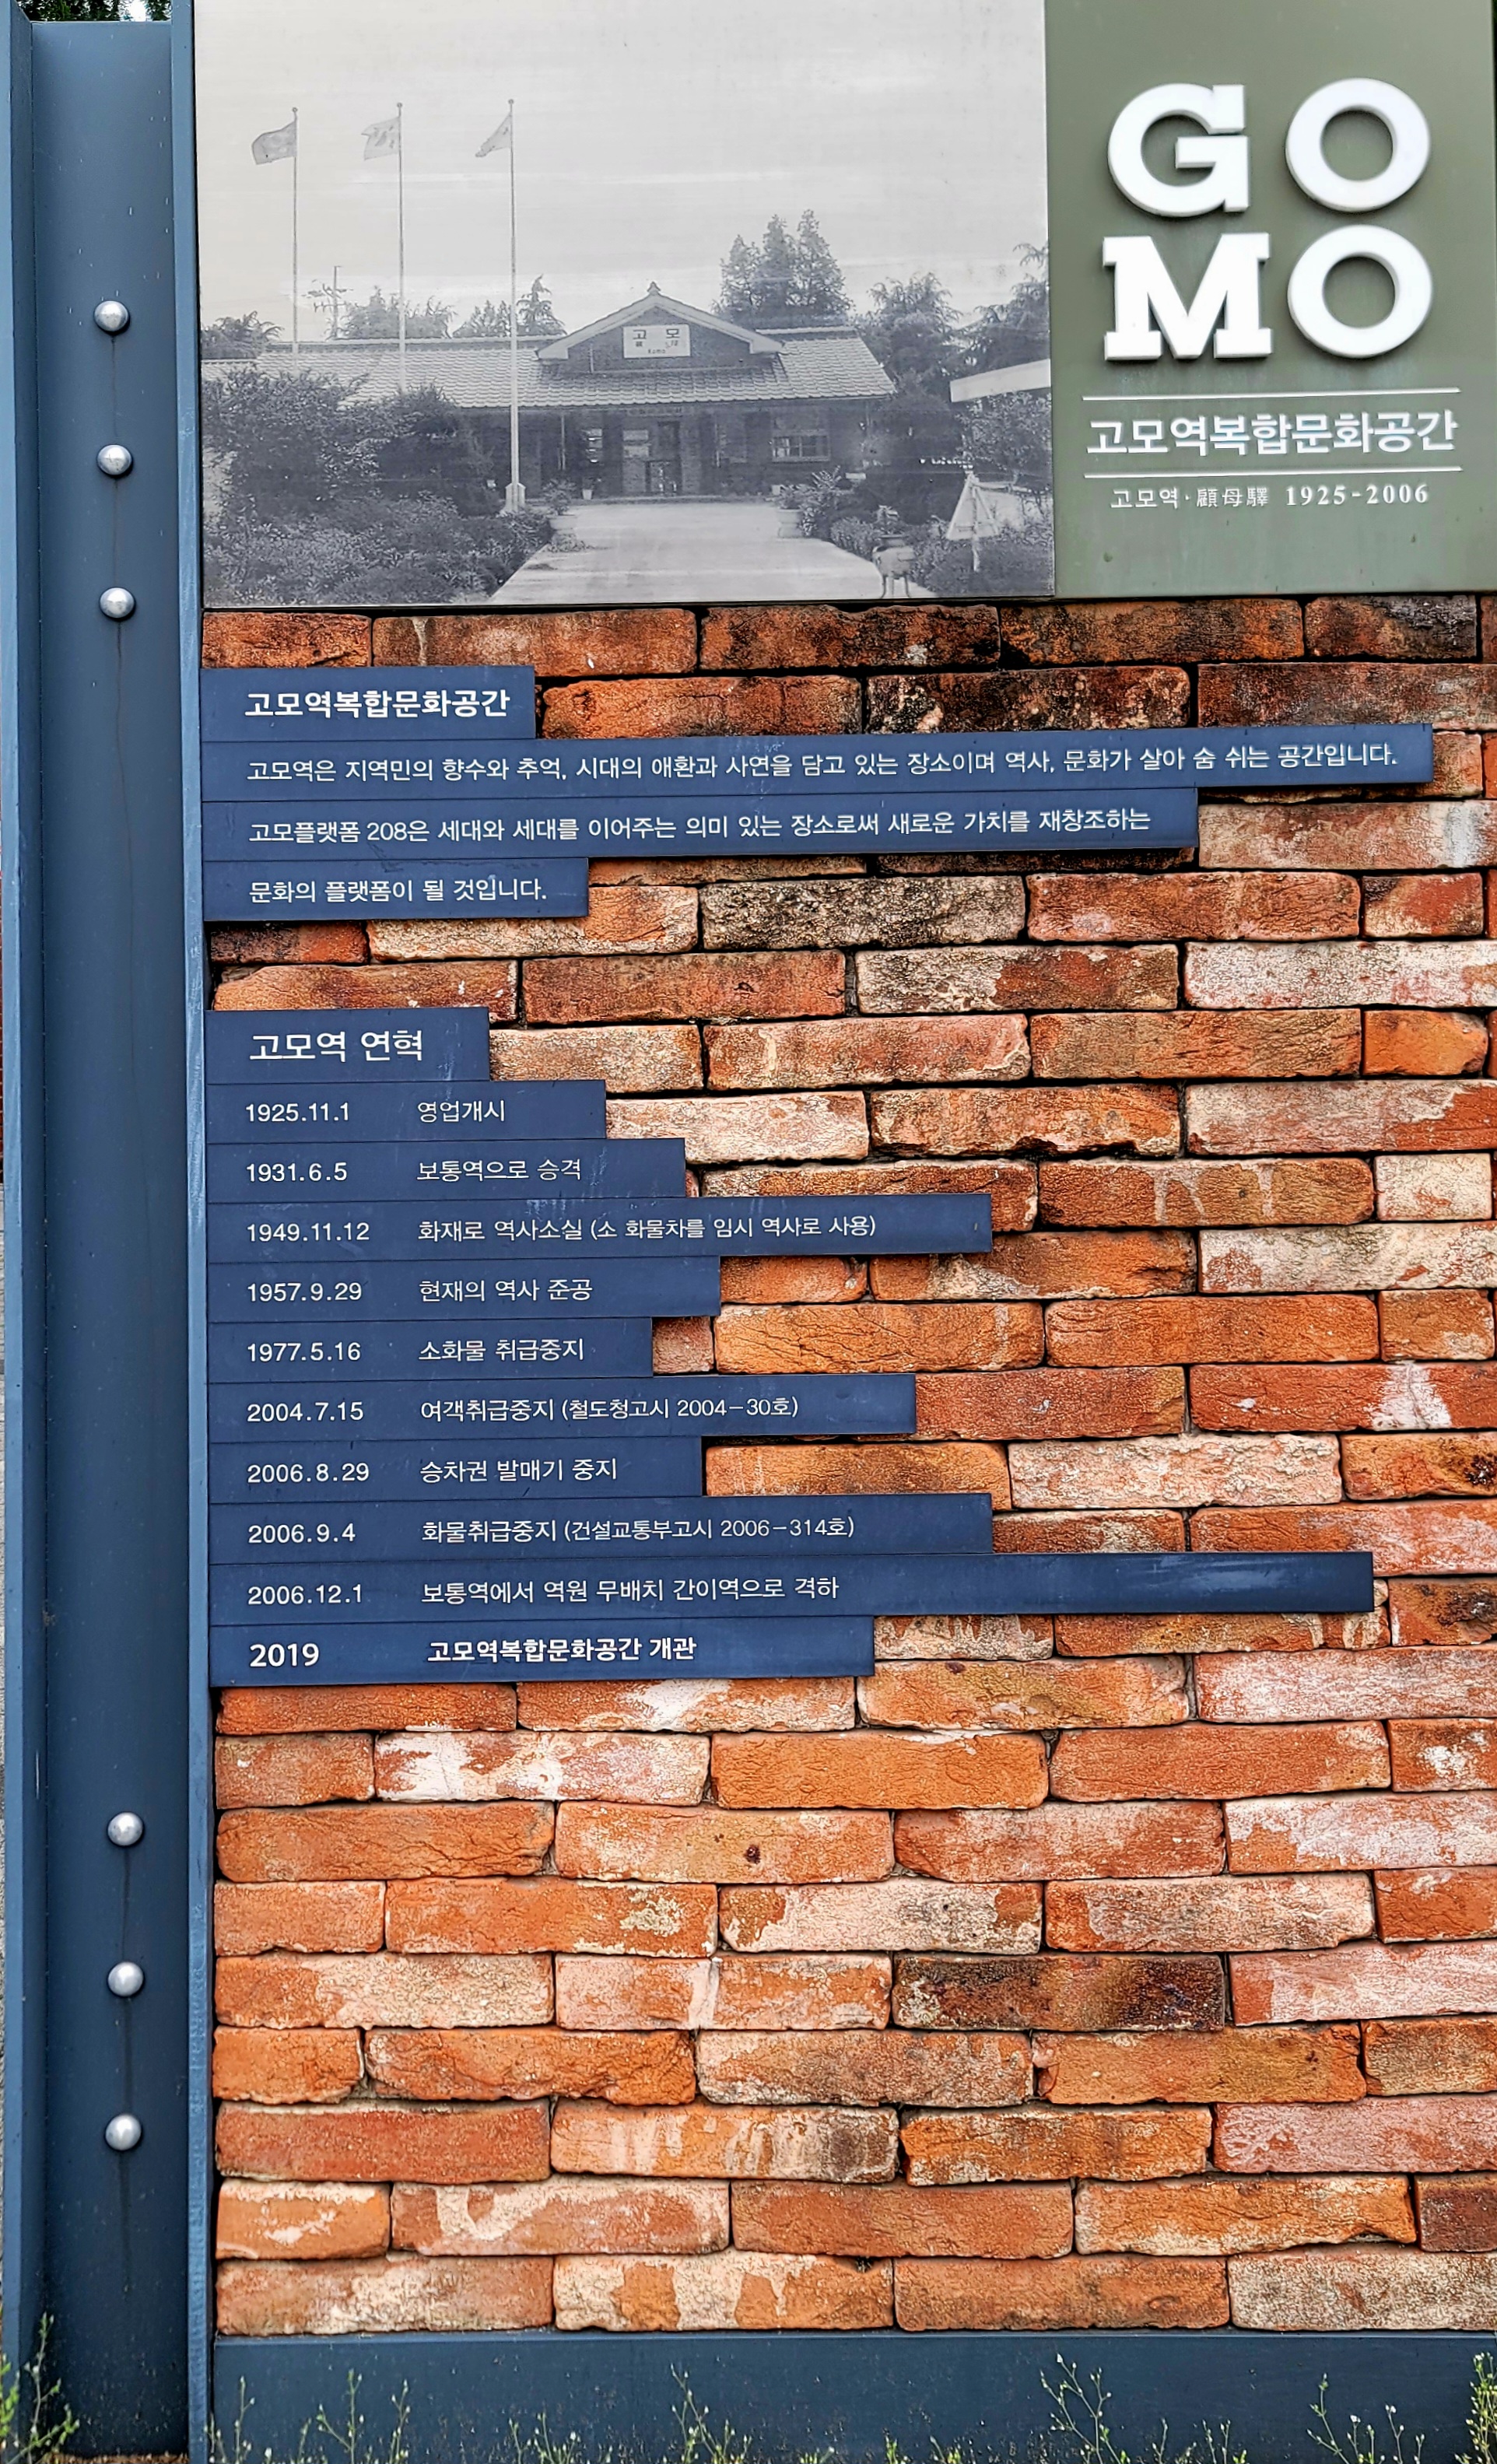 고모
Komo
GO
MO
고모역복합문화공간
고모역·顧母驛 1925-2006
고모역복합문화공간
고모역은 지역민의 향수와 추억, 시대의 애환과 사연을 담고 있는 장소이며 역사, 문화가 살아 숨 쉬는 공간입니다.
고모플랫폼 208은 세대와 세대를 이어주는 의미 있는 장소로써 새로운 가치를 재창조하는
문화의 플랫폼이 될 것입니다.
고모역 연혁
1925.11.1 영업개시
1931.6.5 보통역으로 승격
1949.11.12 화재로 역사소실 (소 화물차를 임시 역사로 사용)
1957.9.29 현재의 역사 준공
1977.5.16 소화물 취급중지
2004.7.15 여객취급중지 (철도청고시 2004-30호)
2006.8.29 승차권 발매기 중지
2006.9.4 화물취급중지 (건설교통부고시 2006-314호)
2006.12.1 보통역에서 역원 무배치 간이역으로 격하
2019 고모역복합문화공간 개관